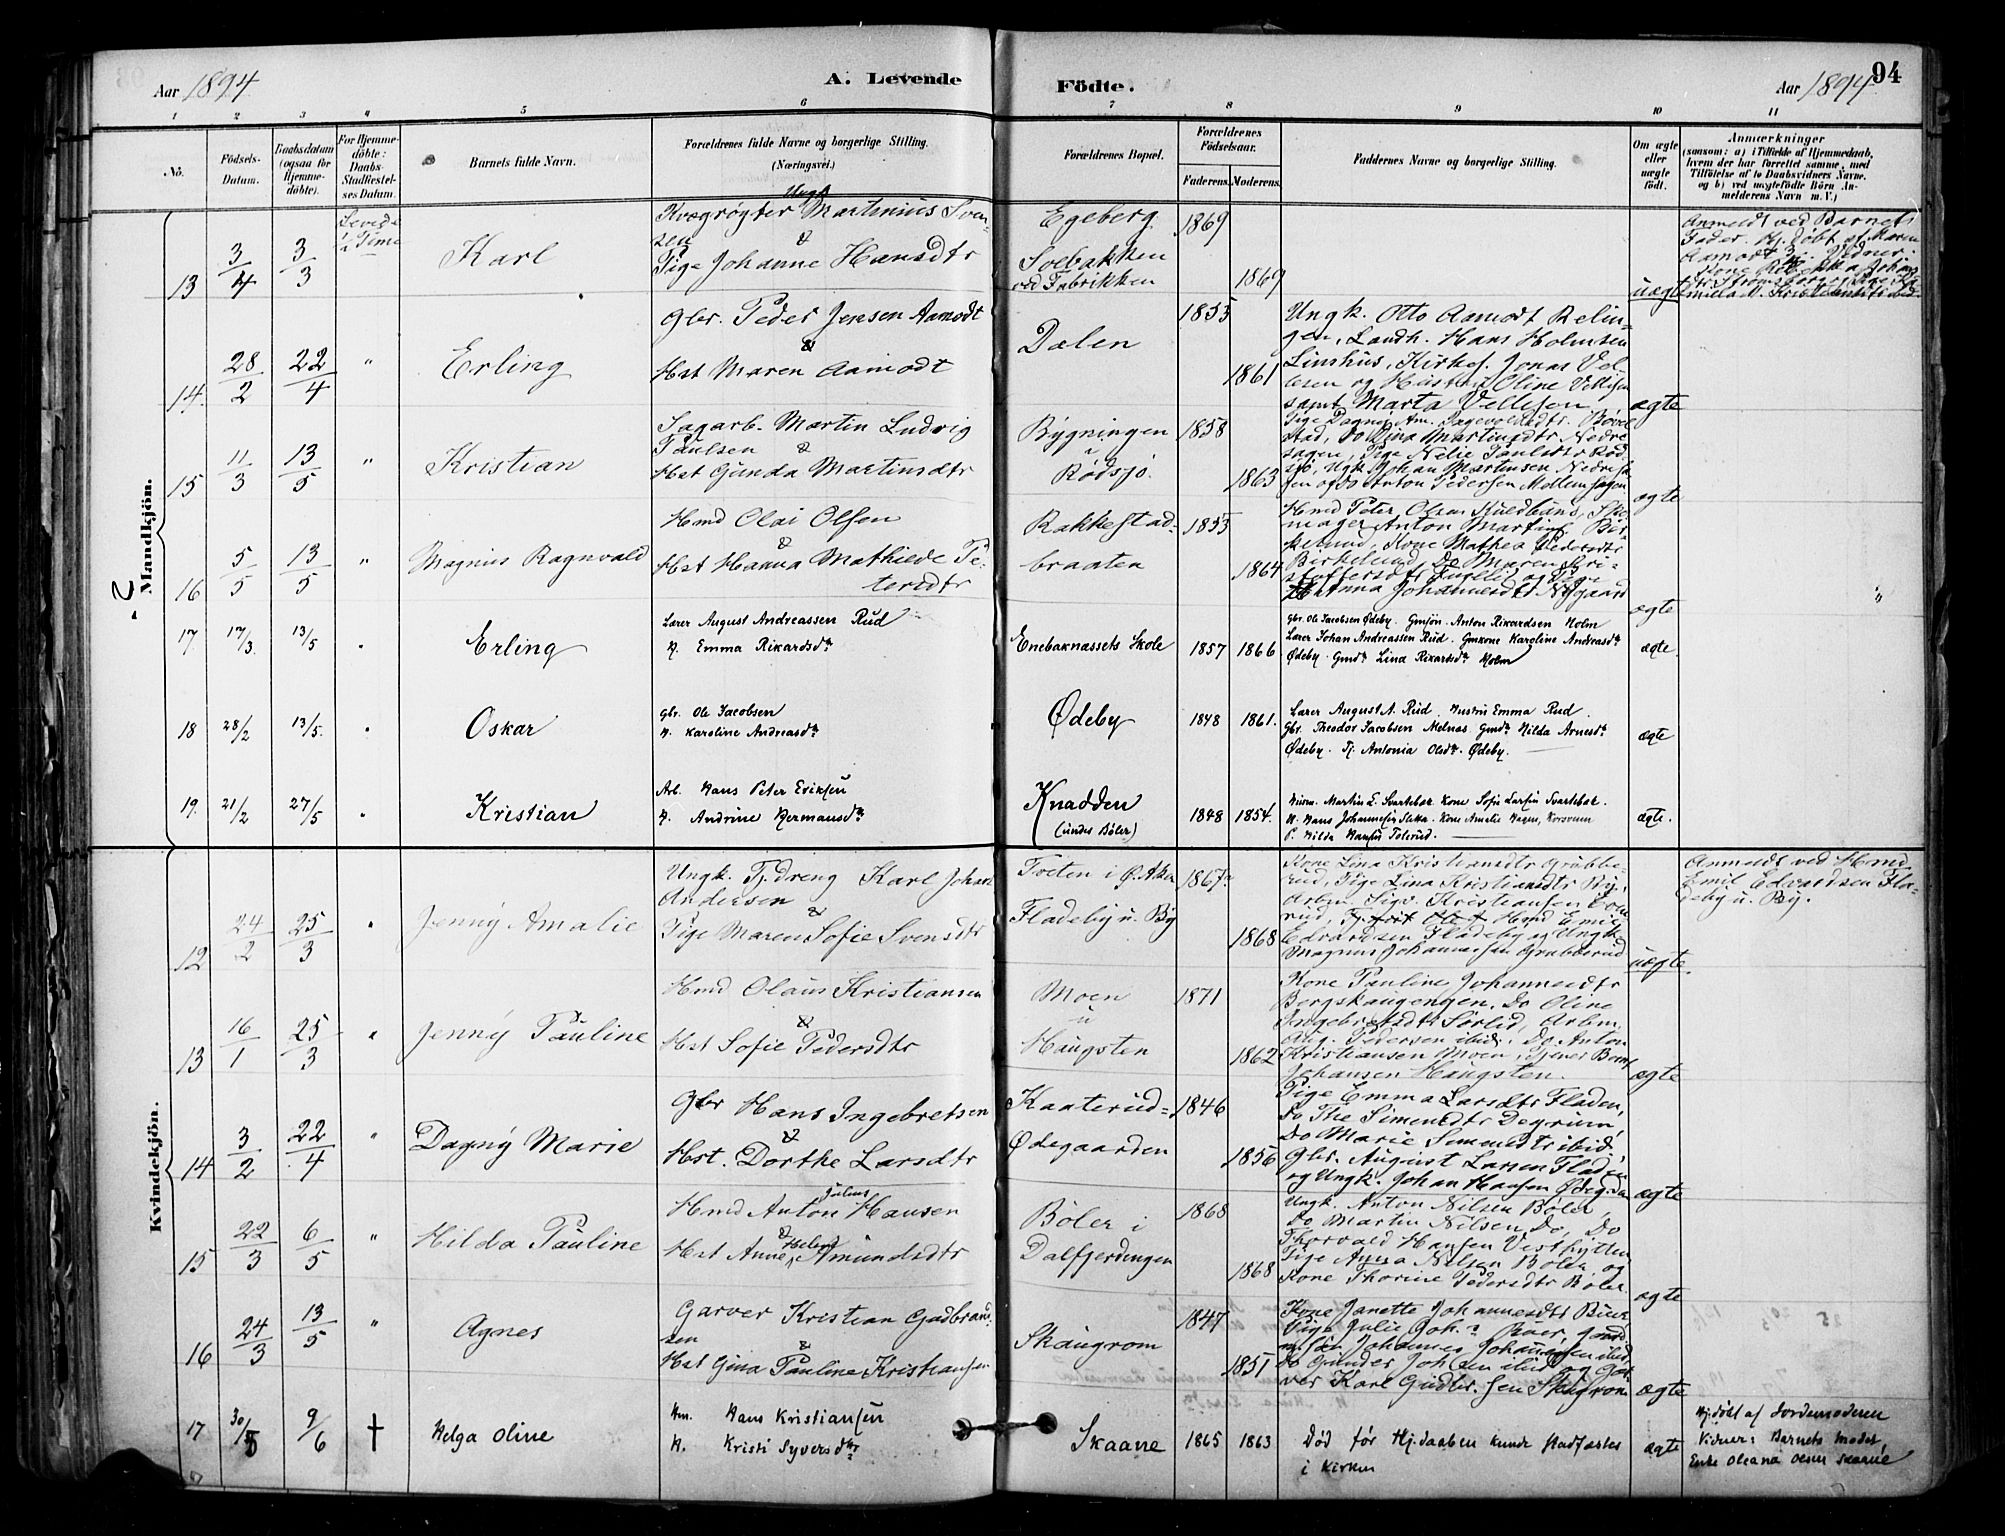 Aar 1894
A. Levende
Födte.
Aar 1894
94
1 2 3 4 5 6 7 8 9 10 11
No.
Födsels-
Datum.
Daabsdatum
(ogsaa for
Hjemme-
döbte).
For Hjemme-
döbte:
Daabs
Stadfæstel-
ses Datum.
Barnets fulde Navn.
Forældrenes fulde Navne og borgerlige Stilling.
(Næringsvei.)
Forældrenes Bopæl.
Forældrenes
Födselsaar.
Faderens.
Moderens.
Faddernes Navne og borgerlige Stilling.
Om ægte
eller
uægte
födt.
Anmærkninger
(saasom: a) i Tilfælde af Hjemmedaab,
hvem der har forrettet samme, med
Tilföielse af to Daabsvidners Navne.
og b) ved uægtefödte Börn An-
melderens Navn m. V.)
Mandkjön.
13
3/4
3/3
Karl
Ungk
Kvægrøgter Martinius Sven-
sen
&
Pige Johanne Hansdtr
Egeberg
Svebakken
ved Fabrikken
1869
1869
uægte
Anmeldt ved Barnets
Fader. Hj. døbt af Maren
Aamodt
14.
28/2
22/4
"
Erling
Gbr. Peder Jensen Aamodt
&
Hst Maren Aamodt
Dalen
1853
1861
Ungk. Otto Aamodt Relin-
gen, Landh. Hans Holmsen
Linshus, Kirkes. Jonas Vel-
lesen og Hustru Oline Vellesen
samt Marta Vellesen
ægte
15
11/3
13/5
"
Kristian
Sagarb. Martin Ludvig
Paulsen
&
Hst Gunda Martinsdtr
Bygningen
u
Rødsjø.
1858
1863
stad, Do Lina Martinsdtr Nedre
sagen, Pige Nelie Paulsdtr Rød
sjø, Ungk Johan Martinsen Nedre sa
gen og Do Anton Pedersen Mellemsagen
ægte
16
5/5
13/5
"
Magnus Ragnvald
Hmd Olai Olsen
&
Hst Hanna Mathilde Pe-
tersdtr
Rakkestad-
braaten
1853
1864
Hmd Peter Olsen
mager Anton Martins
Kone Mathea Pedersdtr
Birkelund, Do Maren Kri-
stoffersdtr Engelie og Pige
Anna Johannesdtr Nygaard
ægte
17.
17/3.
13/5
Erling
Lærer August Andreassen Rud
H. Emma Rikardsdtr
Enebaknæssets Skole
1857
1866
Gbr. Ole Jacobsen Ødeby. Gmsøn. Anton Rikardsen Holm
Lærer Johan Andreassen Rud. Gmkone Karoline Andreasdtr
Ødeby. Gmdtr Lina Rikardsdtr Holm
ægte.
18
28/2
13/5.
Oskar
Gbr. Ole Jacobsen
H. Karoline Andreasdtr
Ødeby
1848
1861.
Lærer August A. Rud. Hustru Emma Rud.
Gbr. Theodor Jacobsen Melnæs. Gmdtr Hilda Arnesdtr
Ødeby. Tj. Antonia Olsdtr Ødeby.
ægte
19.
21/2
27/5
Kristian
Arb. Hans Peter Eriksen
H. Andrine Hermansdtr
Knadden
(under Böler)
1848
1854.
Husm. Martin L. Svartebæk. Kone Sofie Larsen Svartebæk.
H. Hans Johannesen Slika. Kone Amalie Hagen, Korsveien
P. Hilda Hansen Tolerud.
ægte.
Kvindekjön.
12
24/2
25/3
"
Jenny Amalie
Ungk. Tj.dreng Karl Johan
Andersen
&
Pige Maren Sofie Svensdtr
Tveten i Ø. Aker
Fladeby u. By
1867
1868
Kone Lina Kristiansdtr Grubbe-
rud, Pige Lina Kristiansdtr By,
Arbm. Sigv. Kristiansen
rud, Hmd Emil
Edvardsen Fladeby og Ungk
Magnus Johannesen Grubberud
uægte.
Anmeldt ved Hmd
Emil Edvardsen Fla-
deby u. By.
13
16/1
25/3
"
Jenny Pauline
Hmd Olaus Kristiansen
&
Hst Sofie Pedersdtr
Moen
u
Haugsten
1871
1862
Kone Pauline Johannesdtr
Bergskaugengen, Do Oline
Ingebretsdtr Sørlid, Arbm.
Aug. Pedersen ibid, Do Anton
Kristiansen Moen, Tjener Bernt
Johansen Haugsten.
ægte
14
3/2
22/4
"
Dagny Marie
Gbr Hans Ingebretsen
&
Hst. Dorthe Larsdtr
Kaaterud-
Ødegaarden
1846
1856
Pige Emma Larsdtr Fladen,
Do The Simensdtr Degrum,
Do Marie Simensdtr ibid,
Gbr. August Larsen Fladen
og Ungk. Johan Hansen Ødegden
ægte
15
22/3
6/5
"
Hilda Pauline
Hmd Anton Julius Hansen
&
Hst Anne Helene Amundsdtr
Bøler i
Dalfjerdingen
1868
1868
Ungk. Anton Nilsen Bøler,
Do Martin Nilsen Do, Do
Thorvald Hansen Vesthytten
Pige Anna Nilsen Bøler og
Kone Thorine Pedersdtr Bøler
ægte
16
24/3
13/5
"
Agnes
Garver Kristian Gudbrand-
sen
&
Hst Gina Pauline Kristiansen
Skaugrom
1847
1851
Kone Janette Johannesdtr
Pige Julie Joh.
Johannes Johannesen ibid
Do Gunder Joh.sen ibid og Gar-
ver Karl Gudbr.sen Skaugrom
ægte
17
30/5
9/6
†
Helga Oline
Hm. Hans Kristiansen
H. Kristi Syversdtr
Skaane
1865
1863
Död för Hj.daaben kunde stadfæstes
i Kirken
ægte
Hj.döbt af Jordemoderen
Vidner: Barnets Moder,
Enke Oleana Olsen Skaane